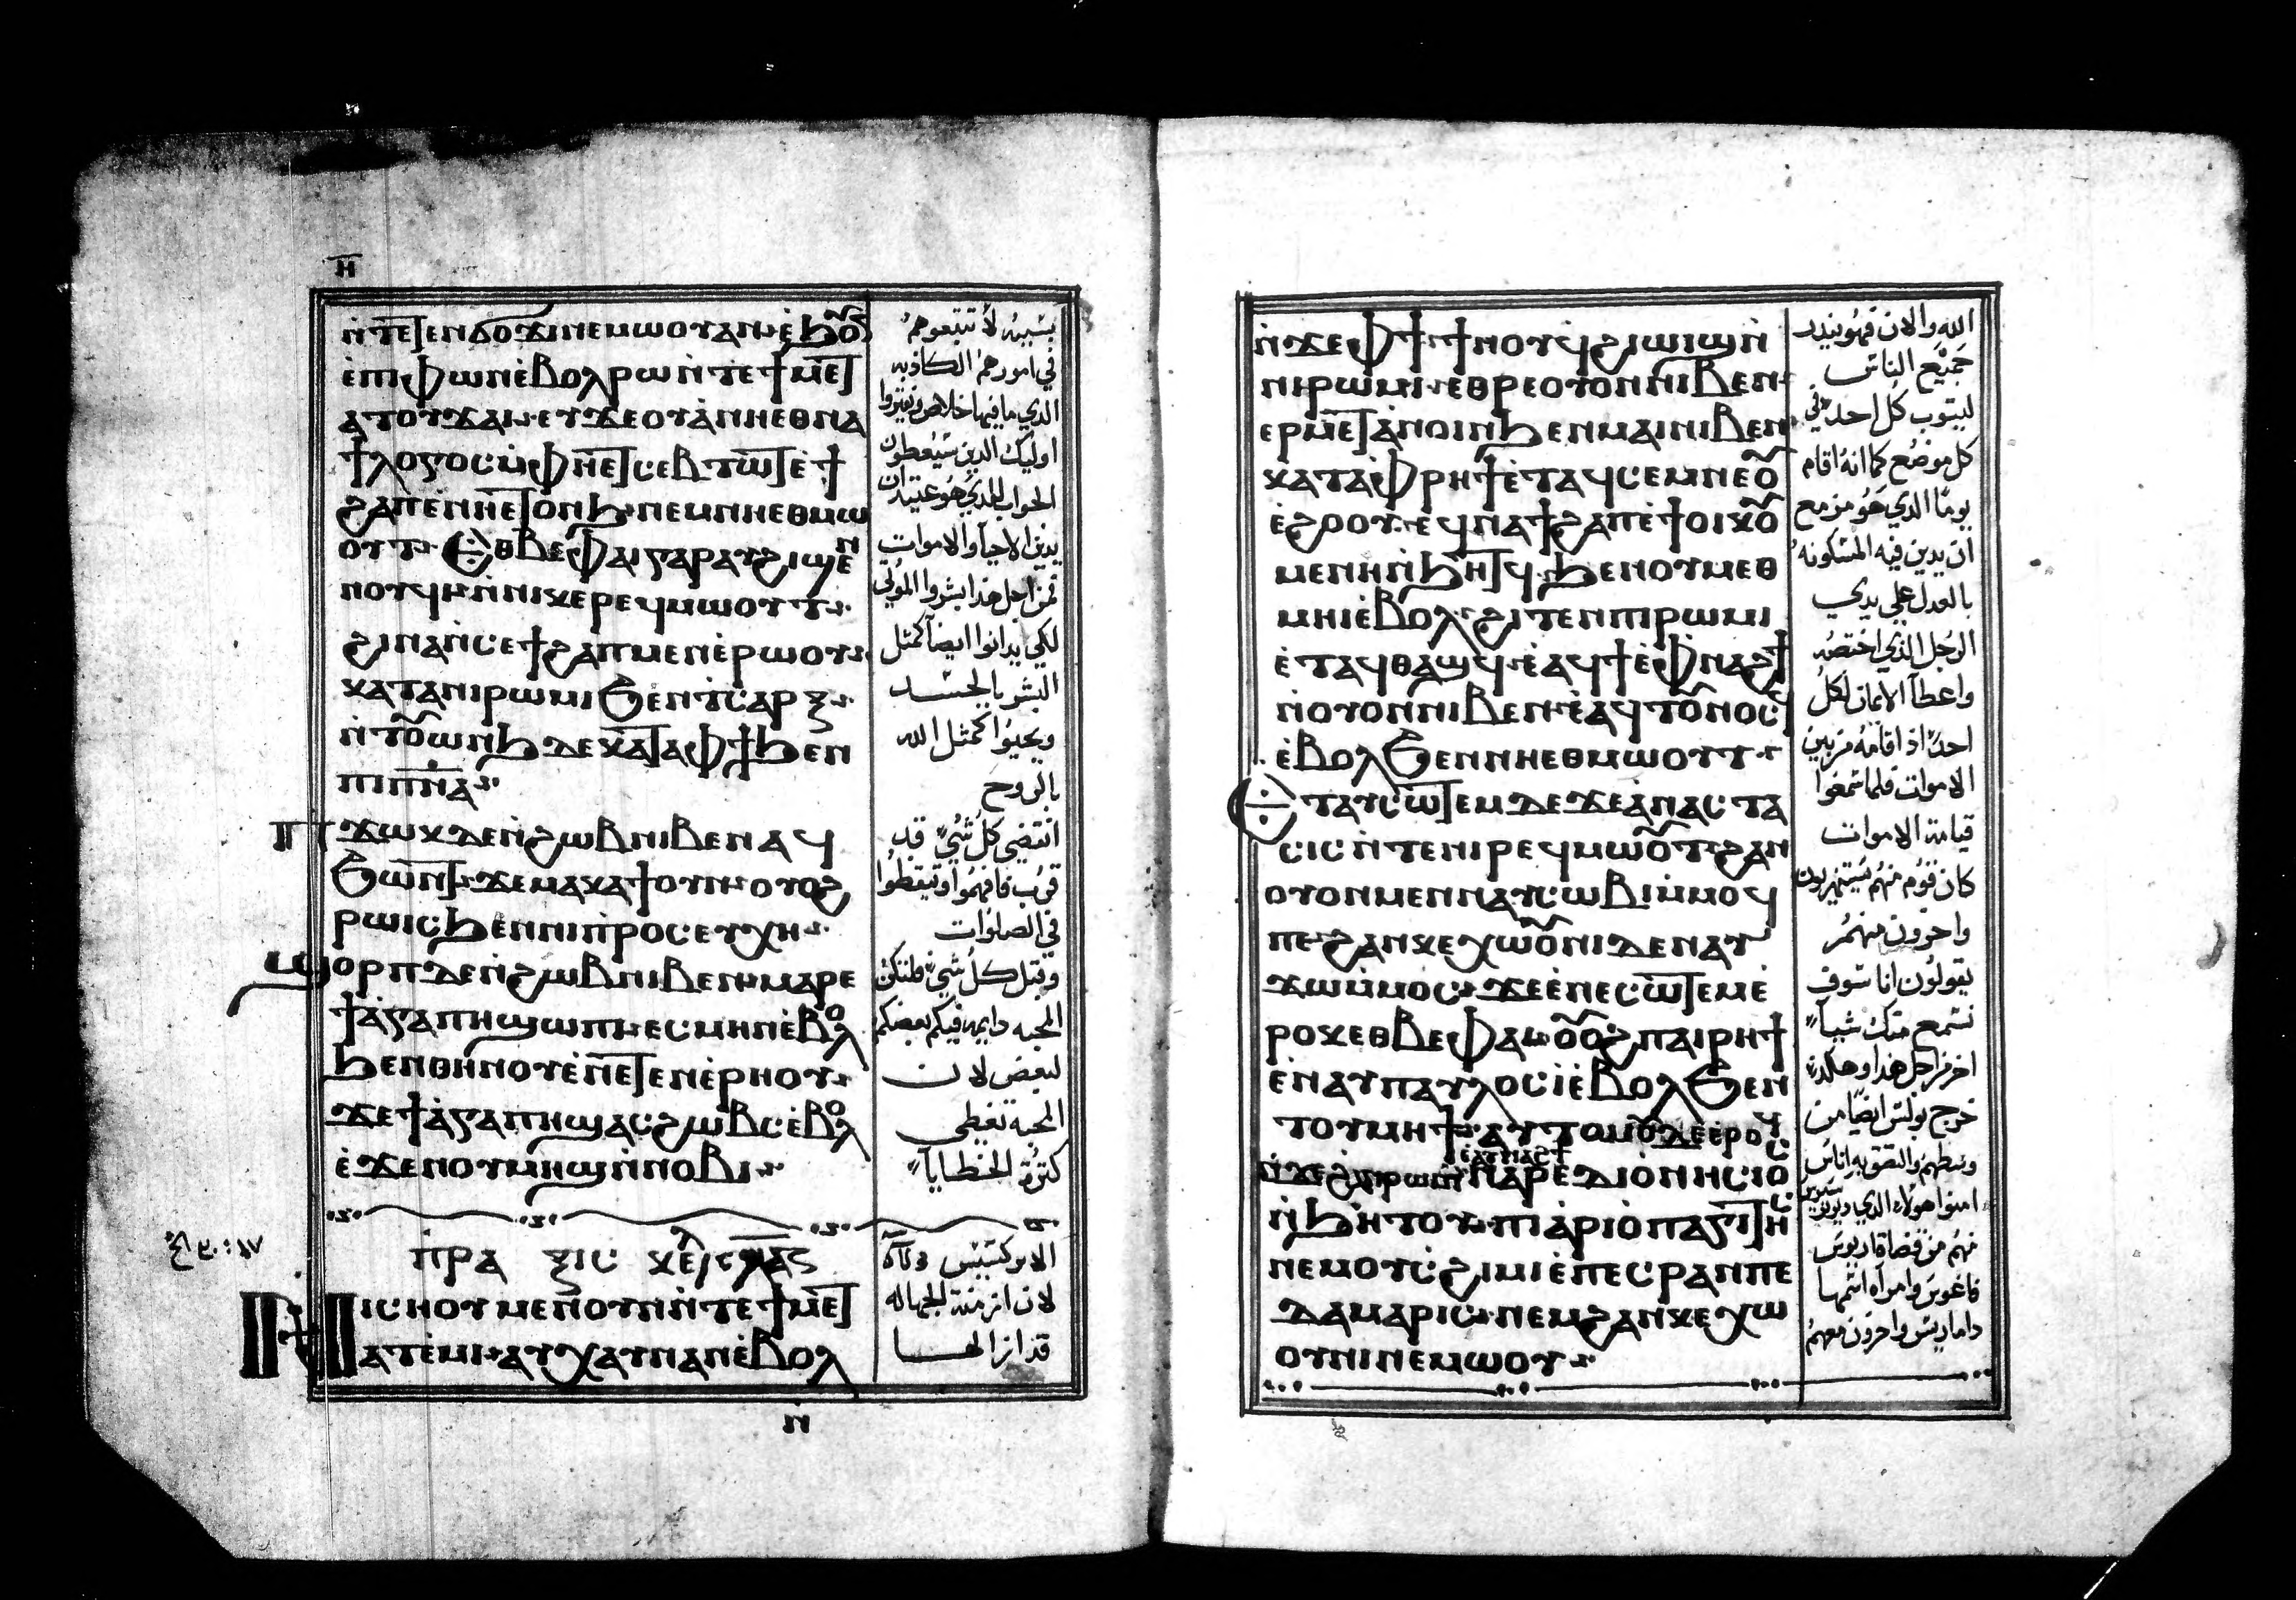 ⲏ̅
ⲛ̀ⲧⲉϥϭⲟϫⲓ ⲛⲉⲙⲱⲟⲩ ⲁⲛ
ⲉ̀ⲡⲓⲫⲱⲛ ⲉ̀ⲃⲟⲗ ⲣⲱ ⲛ̀ⲧⲉ ϯⲙⲉⲧ
ⲁⲧⲟⲩϫⲁⲓ ⲉⲩϫⲉⲟⲩⲁ̀ ⲛⲏⲉⲑⲛⲁ
ϯⲗⲟⲅⲟⲥ ⲙ̀ⲫⲏⲉⲧⲥⲉⲃⲧⲱⲧ ⲉ̀ϯ
ϩⲁⲡ ⲉ̀ⲛⲏⲉⲧⲟⲛϧ ⲛⲉⲙ ⲛⲏⲉⲑⲙⲱ
ⲟⲩⲧ Ⲉⲑⲃⲉⲫⲁⲓ ⲅⲁⲣ ⲁⲩϩⲓϣⲉⲛ
ⲛⲟⲩϥⲓ ⲛ̀ⲛⲓⲕⲉⲣⲉϥⲙⲱⲟⲩⲧ
ϩⲓⲛⲁ ⲛ̀ⲥⲉϯϩⲁⲡ ⲙⲉⲛ ⲉ̀ⲣⲱⲟⲩ
ⲕⲁⲧⲁ ⲛⲓⲣⲱⲙⲓ ϧⲉⲛ ⲧⲥⲁⲣⲝ
ⲛ̀ⲧⲟⲩⲱⲛϧ ⲇⲉ ⲕⲁⲧⲁ ⲫϯ ϧⲉⲛ
ⲡⲓⲡ̅ⲛ̅ⲁ̅
Ⲡϫⲱⲕ ⲇⲉ ⲛ̀ϩⲱⲃ ⲛⲓⲃⲉⲛ ⲁϥ
ϧⲱⲛⲧ ϫⲉ ⲙⲁⲕⲁϯ ⲟⲩⲛ ⲟⲩⲟϩ
ⲣⲱⲓⲥ ϧⲉⲛ ⲛⲓⲡⲣⲟⲥⲉⲩⲭⲏ
Ϣⲟⲣⲡ ⲇⲉ ⲛ̀ϩⲱⲃ ⲛⲓⲃⲉⲛ ⲙⲁⲣⲉ
ϯⲁ̀ⲅⲁⲡⲏ ϣⲱⲡⲓ ⲉⲥⲙⲏⲛ ⲉ̀ⲃⲟⲗ
ϧⲉⲛ ⲑⲏⲛⲟⲩ ⲉ̀ⲛⲉⲧⲉⲛⲉ̀ⲣⲏⲟⲩ
ϫⲉ ϯⲁ̀ⲅⲁⲡⲏ ϣⲁⲥϩⲱⲃⲥ ⲉ̀ⲃⲟⲗ
ⲉ̀ϫⲉⲛ ⲟⲩⲙⲏϣ ⲛ̀ⲛⲟⲃⲓ
ⲡⲣⲁⲝⲓⲥ
Ⲛⲓⲥⲏⲟⲩ ⲙⲉⲛ ⲟⲩⲛ ⲛ̀ⲧⲉ ϯⲙⲉⲧ
ⲁⲧⲉ̀ⲙⲓ ⲁⲩⲭⲁⲩ ⲛⲁⲛ ⲉ̀ⲃⲟⲗ
بسببه لا تتبعوهم
في امورهم الكاذبه
الذي ما فيها خلاص
اوليك الدين سيعطون
الجواب للذي هو عتيد ان
يدين الاحيا والاموات
فمن اجل هذا بشروا الموتي
لكي يدانوا ايضا كمثل
البشر بالجسد
ويحيوا كمثل الله
بالروح
انقضى كل شي قد
قرب فافهموا وتيقظوا
في الصلوات
وقبل كل شي فلتكن
المحبه دايمه فيكم بعضكم
لبعض لان
المحبه تغطي
كثرة الخطايا
الابركسيس
لان ازمنة الجهاله
قد ازالها
ⲛ̀
ⲛ̀ϫⲉ ⲫϯ ϯⲛⲟⲩ ϥϩⲓⲱⲓϣ ⲛ̀
ⲛⲓⲣⲱⲙⲓ ⲉⲑⲣⲉ ⲟⲩⲟⲛ ⲛⲓⲃⲉⲛ
ⲉⲣⲙⲉⲧⲁ̀ⲛⲟⲓⲛ ϧⲉⲛ ⲙⲁⲓ ⲛⲓⲃⲉⲛ
ⲕⲁⲧⲁ ⲫⲣⲏϯ ⲉ̀ⲧⲁϥⲥⲉⲙⲛⲉ ⲟⲩ
ⲉ̀ϩⲟⲟⲩ ⲉϥⲛⲁϯϩⲁⲡ ⲉ̀ϯⲟⲓⲕⲟⲩ
ⲙⲉⲛⲏ ⲛ̀ϧⲏⲧϥ ϧⲉⲛ ⲟⲩⲙⲉⲑ
ⲙⲏⲓ ⲉ̀ⲃⲟⲗ ϩⲓⲧⲉⲛ ⲡⲓⲣⲱⲙⲓ
ⲉ̀ⲧⲁϥⲑⲁϣϥ ⲉ̀ⲁϥϯ ⲉ̀ⲫⲛⲁϩϯ
ⲛ̀ⲟⲩⲟⲛ ⲛⲓⲃⲉⲛ ⲉ̀ⲁϥⲧⲟⲩⲛⲟⲥϥ
ⲉ̀ⲃⲟⲗ ϧⲉⲛ ⲛⲏⲉⲑⲙⲱⲟⲩⲧ
Ⲉⲧⲁⲩⲥⲱⲧⲉⲙ ⲇⲉ ϫⲉ ⲁ̀ⲛⲁⲥⲧⲁ
ⲥⲓⲥ ⲛ̀ⲧⲉ ⲛⲓⲣⲉϥⲙⲱⲟⲩⲧ ϩⲁⲛ
ⲟⲩⲟⲛ ⲙⲉⲛ ⲛⲁⲩⲥⲱⲃⲓ ⲙ̀ⲙⲟϥ
ⲡⲉ ϩⲁⲛⲕⲉⲭⲱⲟⲩⲛⲓ ⲇⲉ ⲛⲁⲩ
ϫⲱ ⲙ̀ⲙⲟⲥ ϫⲉ ⲉ̀ⲛⲉⲥⲱⲧⲉⲙ ⲉ̀
ⲣⲟⲕ ⲉⲑⲃⲉ ⲫⲁⲓ ⲟⲩⲟϩ ⲡⲁⲓⲣⲏϯ
ⲉ̀ⲛⲁⲩ ⲡⲁⲩⲗⲟⲥ ⲓ̀ ⲉ̀ⲃⲟⲗ ϧⲉⲛ
ⲧⲟⲩⲙⲏϯ ⲁⲩⲧⲟⲙⲟⲩ ⲇⲉ ⲉ̀ⲣⲟϥ
ⲉ̀ⲁⲩⲛⲁϩϯ
ⲛ̀ϫⲉ ϩⲁⲛⲣⲱⲙⲓ ⲛⲁⲣⲉ ⲇⲓⲟⲛⲏⲥⲓⲟⲥ
ⲛ̀ϧⲏⲧⲟⲩ ⲡⲓⲁ̀ⲣⲓⲟ̀ⲡⲁⲅⲓⲧⲏⲥ
ⲛⲉⲙ ⲟⲩⲥϩⲓⲙⲓ ⲉ̀ⲡⲉⲥⲣⲁⲛ ⲡⲉ
ⲇⲁⲙⲁⲣⲓⲥ ⲛⲉⲙ ϩⲁⲛⲕⲉⲭⲱ
ⲟⲩⲛⲓ ⲛⲉⲙⲱⲟⲩ
الله والان فهو ينذر
جميع الناس
ليتوب كل احد في
كل موضع كما انه اقام
يوما الذي هو مزمع
ان يدين فيه المسكونه
بالعدل علي يدي
الرجل الذي اختصه
واعطا الايمان لكل
احد اذ اقامه من بين
الاموات فلما سمعوا
قيامة الاموات
كان قوم منهم يستهزيون
واخرون منهم
يقولون انا سوف
نسمع منك شيا
اخر من اجل هذا وهكذا
خرج بولس ايضا من
وسطهم والتصق به اناس
امنوا هولاء الذي
منهم من قضاة اريوس
فاغوس وامراه اسمها
داماريس واخرون معهم